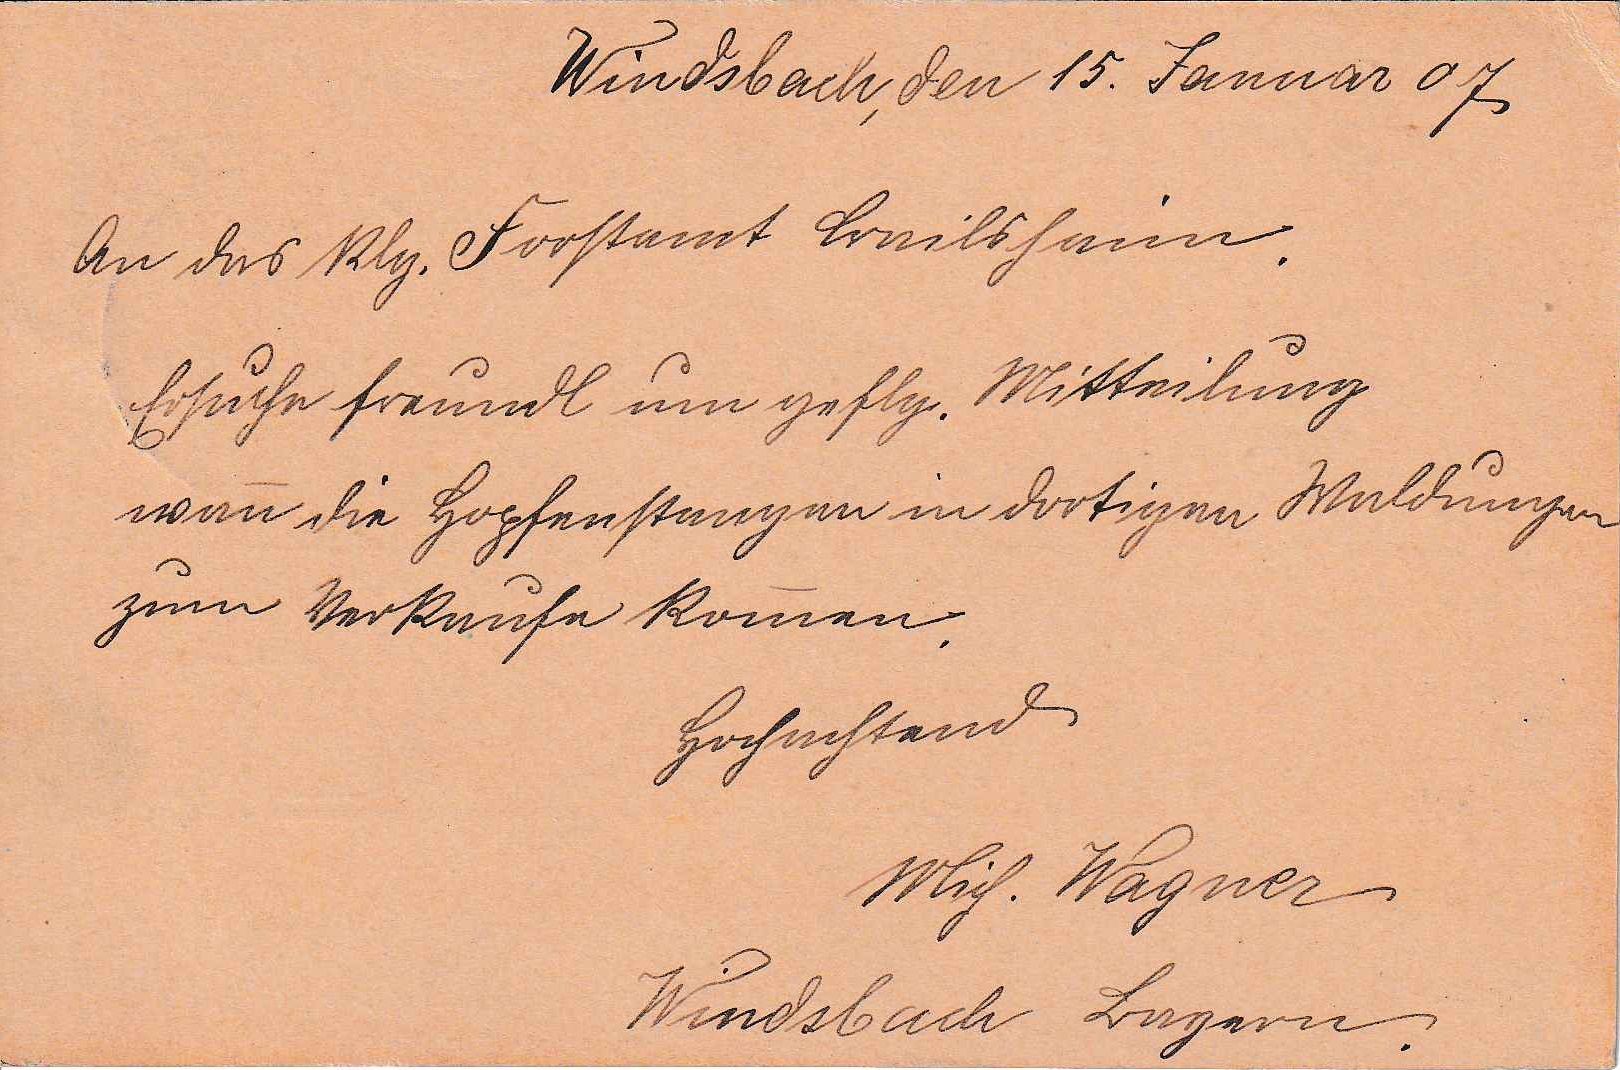 Windsbach, den 15. Januar 07
An das Klg. Forstamt Crailsheim.
Ersuche freundl um geflg. Mitteilung
wan̅ die Hopfenstangen in dortigen Waldungen
zum Verkaufe kom̅en.
Hochachtend
Mich. Wagner
Windsbach Bayern.